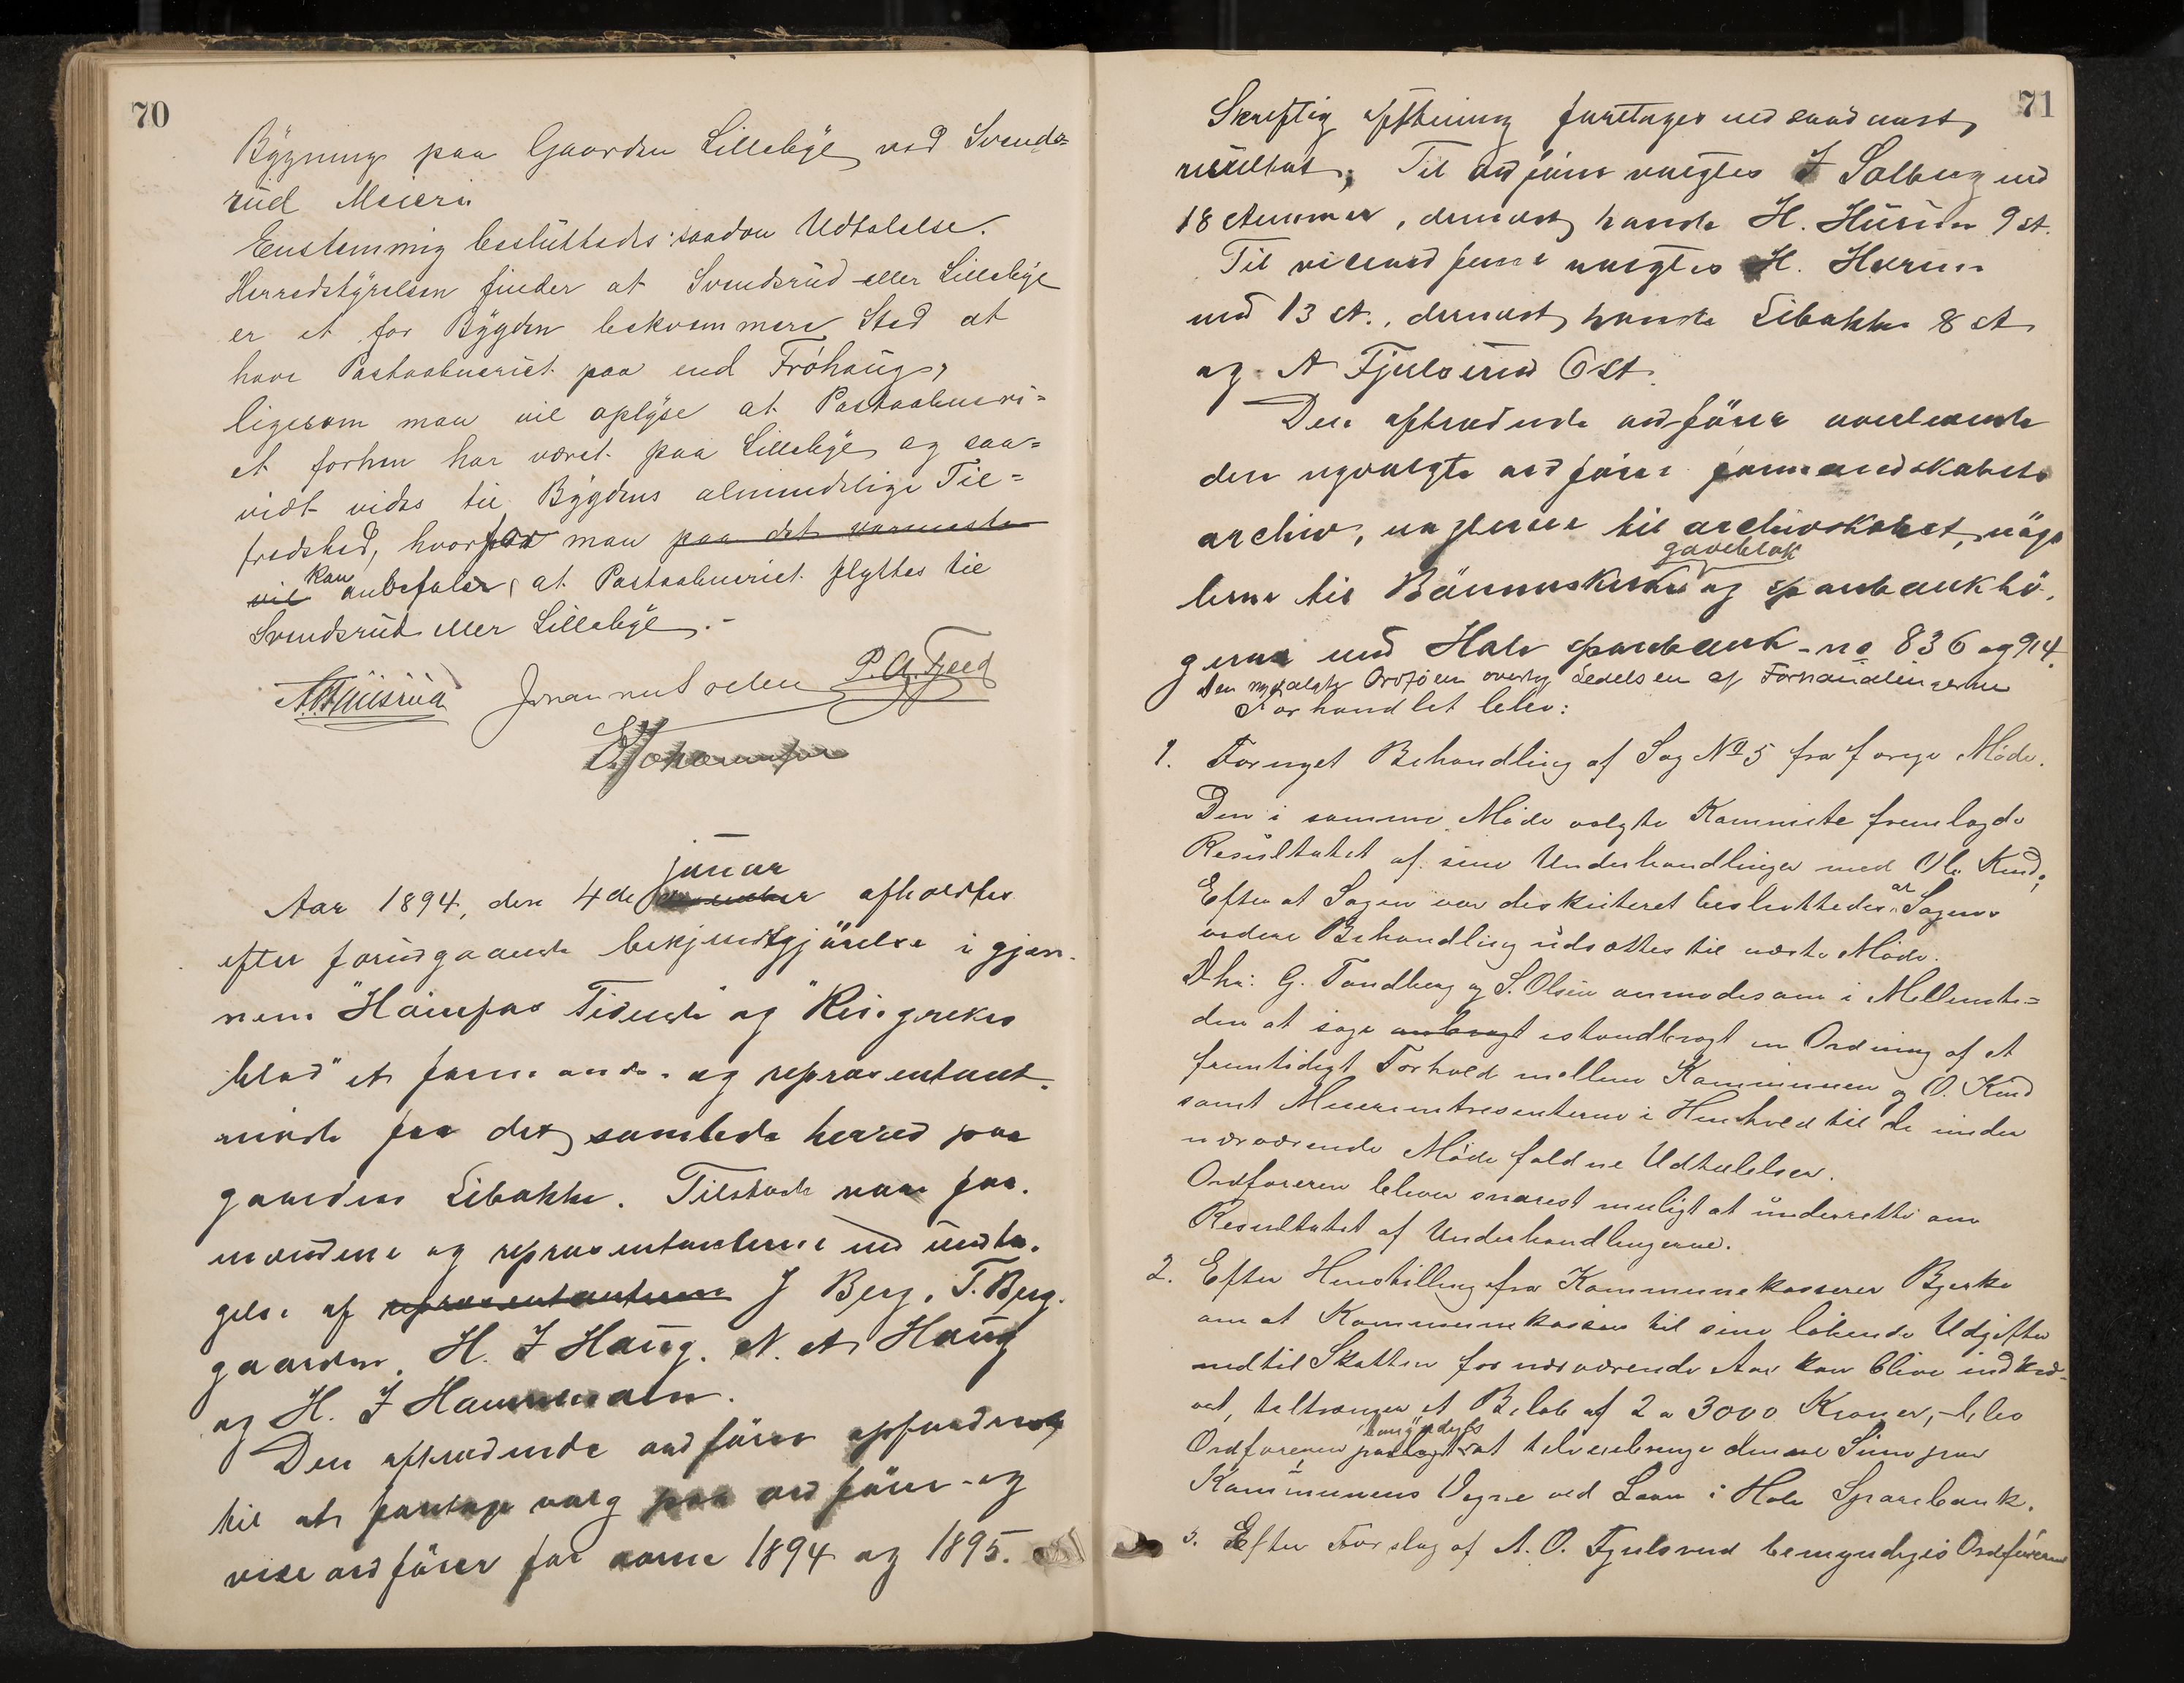 70
Bygning paa Gaarden Lillebye ved Svends=
rud Meieri
Enstemmig besluttedes saadan Udtalelse.
Herredstyrelsen finder at Svendsrud eller Lillebye
er et for Bygden bekvemmere Sted at
have Postaabneriet paa end Fröhaug,
ligesom man vil oplyse at Postaabneri=
et forhen har været paa Lillebye og saa=
vidt vides til Bygdens almindelige Til=
fredshed, hvorfor man paa det varmeste
vil kan anbefaler, at Postaabneriet flyttes til
Svendsrud eller Lillebye.-
Johannes Solen P. A. Fjeld
E. Johannesen
januar
Aar 1894, den 4de december afholdtes
efter forudgaaende bekjendtgjörelse i gjen-
nem "Hönefos Tidende" og "Ringerikes
blad" et formands- og representant-
möde for det samlede herred paa
gaarden Libakke. Tilstede var for-
mændene og representanterne med undta-
gelse af representanterne J Berg, T. Berg-
gaarden, H. J Haug, N. A Haug
og H. J Hammeren.
Den aftrædende ordförer opfordrede
til at foretage valg paa ordförer og
vise ordförer for aarne 1894 og 1895.
71
Skriftlig afstemning foretages med saadant
resultat; Til ordförer valgtes J Solberg med
18 stemmer, dernæst havde H. Hurum 9 st.
Til viceordförer valgtes H. Hurum
med 13 st., dernæst havde Libakke 8 st
og A Fjulsrud 6 st.
Den aftrædende ordförer overleverte
den nyvalgte ordförer formandskabets
archiv, nöglerne til archivskabet, nög-
lerne til Bönsnes kirke gaveblok og sparebankbö-
gerne med Hole sparebank no 836 og 914.
Den nyvalgte Ordförer overtog Ledelsen af Forhandlingerne
Forhandlet blev:
1. Fornyet Behandling af Sag No 5 fra forrige Møde.
Den i samme Møde valgte Kommite fremlagde
Resultatet af sine Underhandlinger med Ole Kind;
Efter at Sagen var diskuteret besluttedes at Sagens
videre Behandling udsættes til næste Møde.
Dhr: G. Tandberg og S. Olsen anmodes om i Mellemti=
den at søge anbragt istandbragt en Ordning af et
fremtidigt Forhold mellem Kommunen og O. Kind
samt Meieriintresenterne i Henhold til de under
nærværende Møde faldne Udtalelser.
Ordføreren bliver snarest muligt at underrette om
Resultatet af Underhandlingerne.
2. Efter Henstilling fra Kommunekasserer Bjerke
om at Kommunekassen til sine løbende Udgifter
indtil Skatten for nærværende Aar kan blive indkræ-
vet, tiltrænger et Beløb af 2 a 3000 Kroner, - blev
Ordføreren paalagt bemyndiget at tilveiebringe denne Sum paa
Kommunens Vegne ved Laan i Hole Sparebank.
3. Efter Forslag af A. O. Fjulsrud bemyndiges Ordføreren